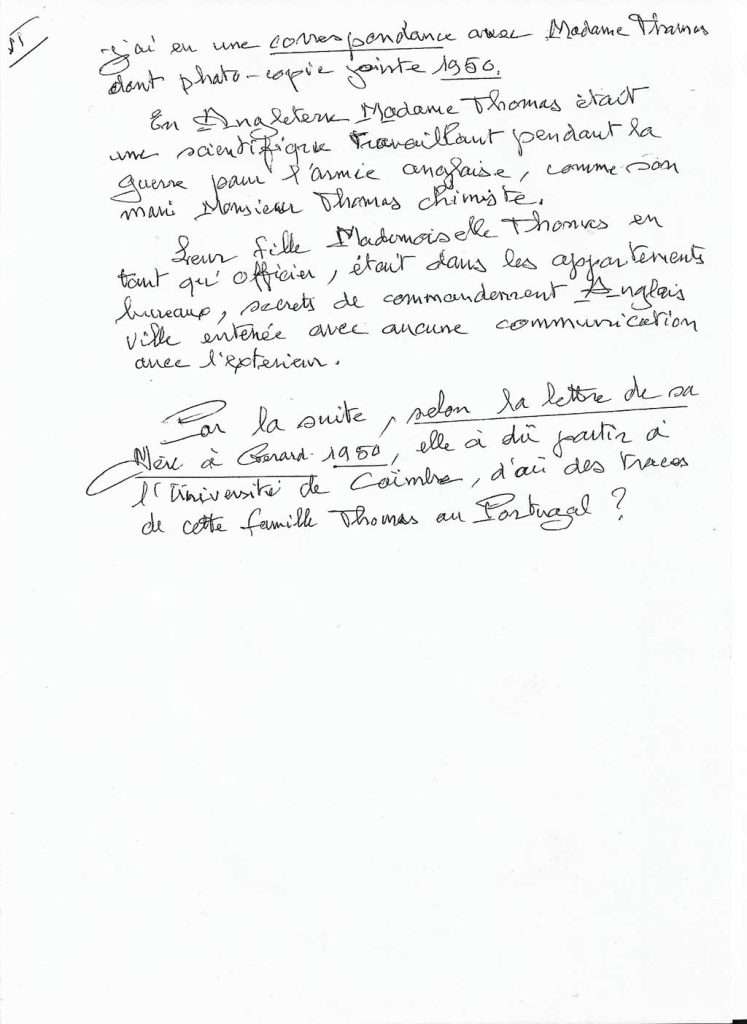 j'ai eu une correspondance avec Madame Thomas
dont photo-copie jointe 1950.
En Angleterre Madame Thomas était
une scientifique travaillant pendant la
guerre pour l'armée anglaise, comme son
mari Monsieur Thomas chimiste.
Leur fille Mademoiselle Thomas en
tant qu'officier, était dans les appartements
bureaux, secrets de commandement Anglais
ville enterrée avec aucune communication
avec l'exterieur.
Par la suite, selon la lettre de sa
Mère à Gerard 1950, elle à dû partir à
l'Université de Coïmbre, d'où des traces
de cette famille Thomas au Portugal ?